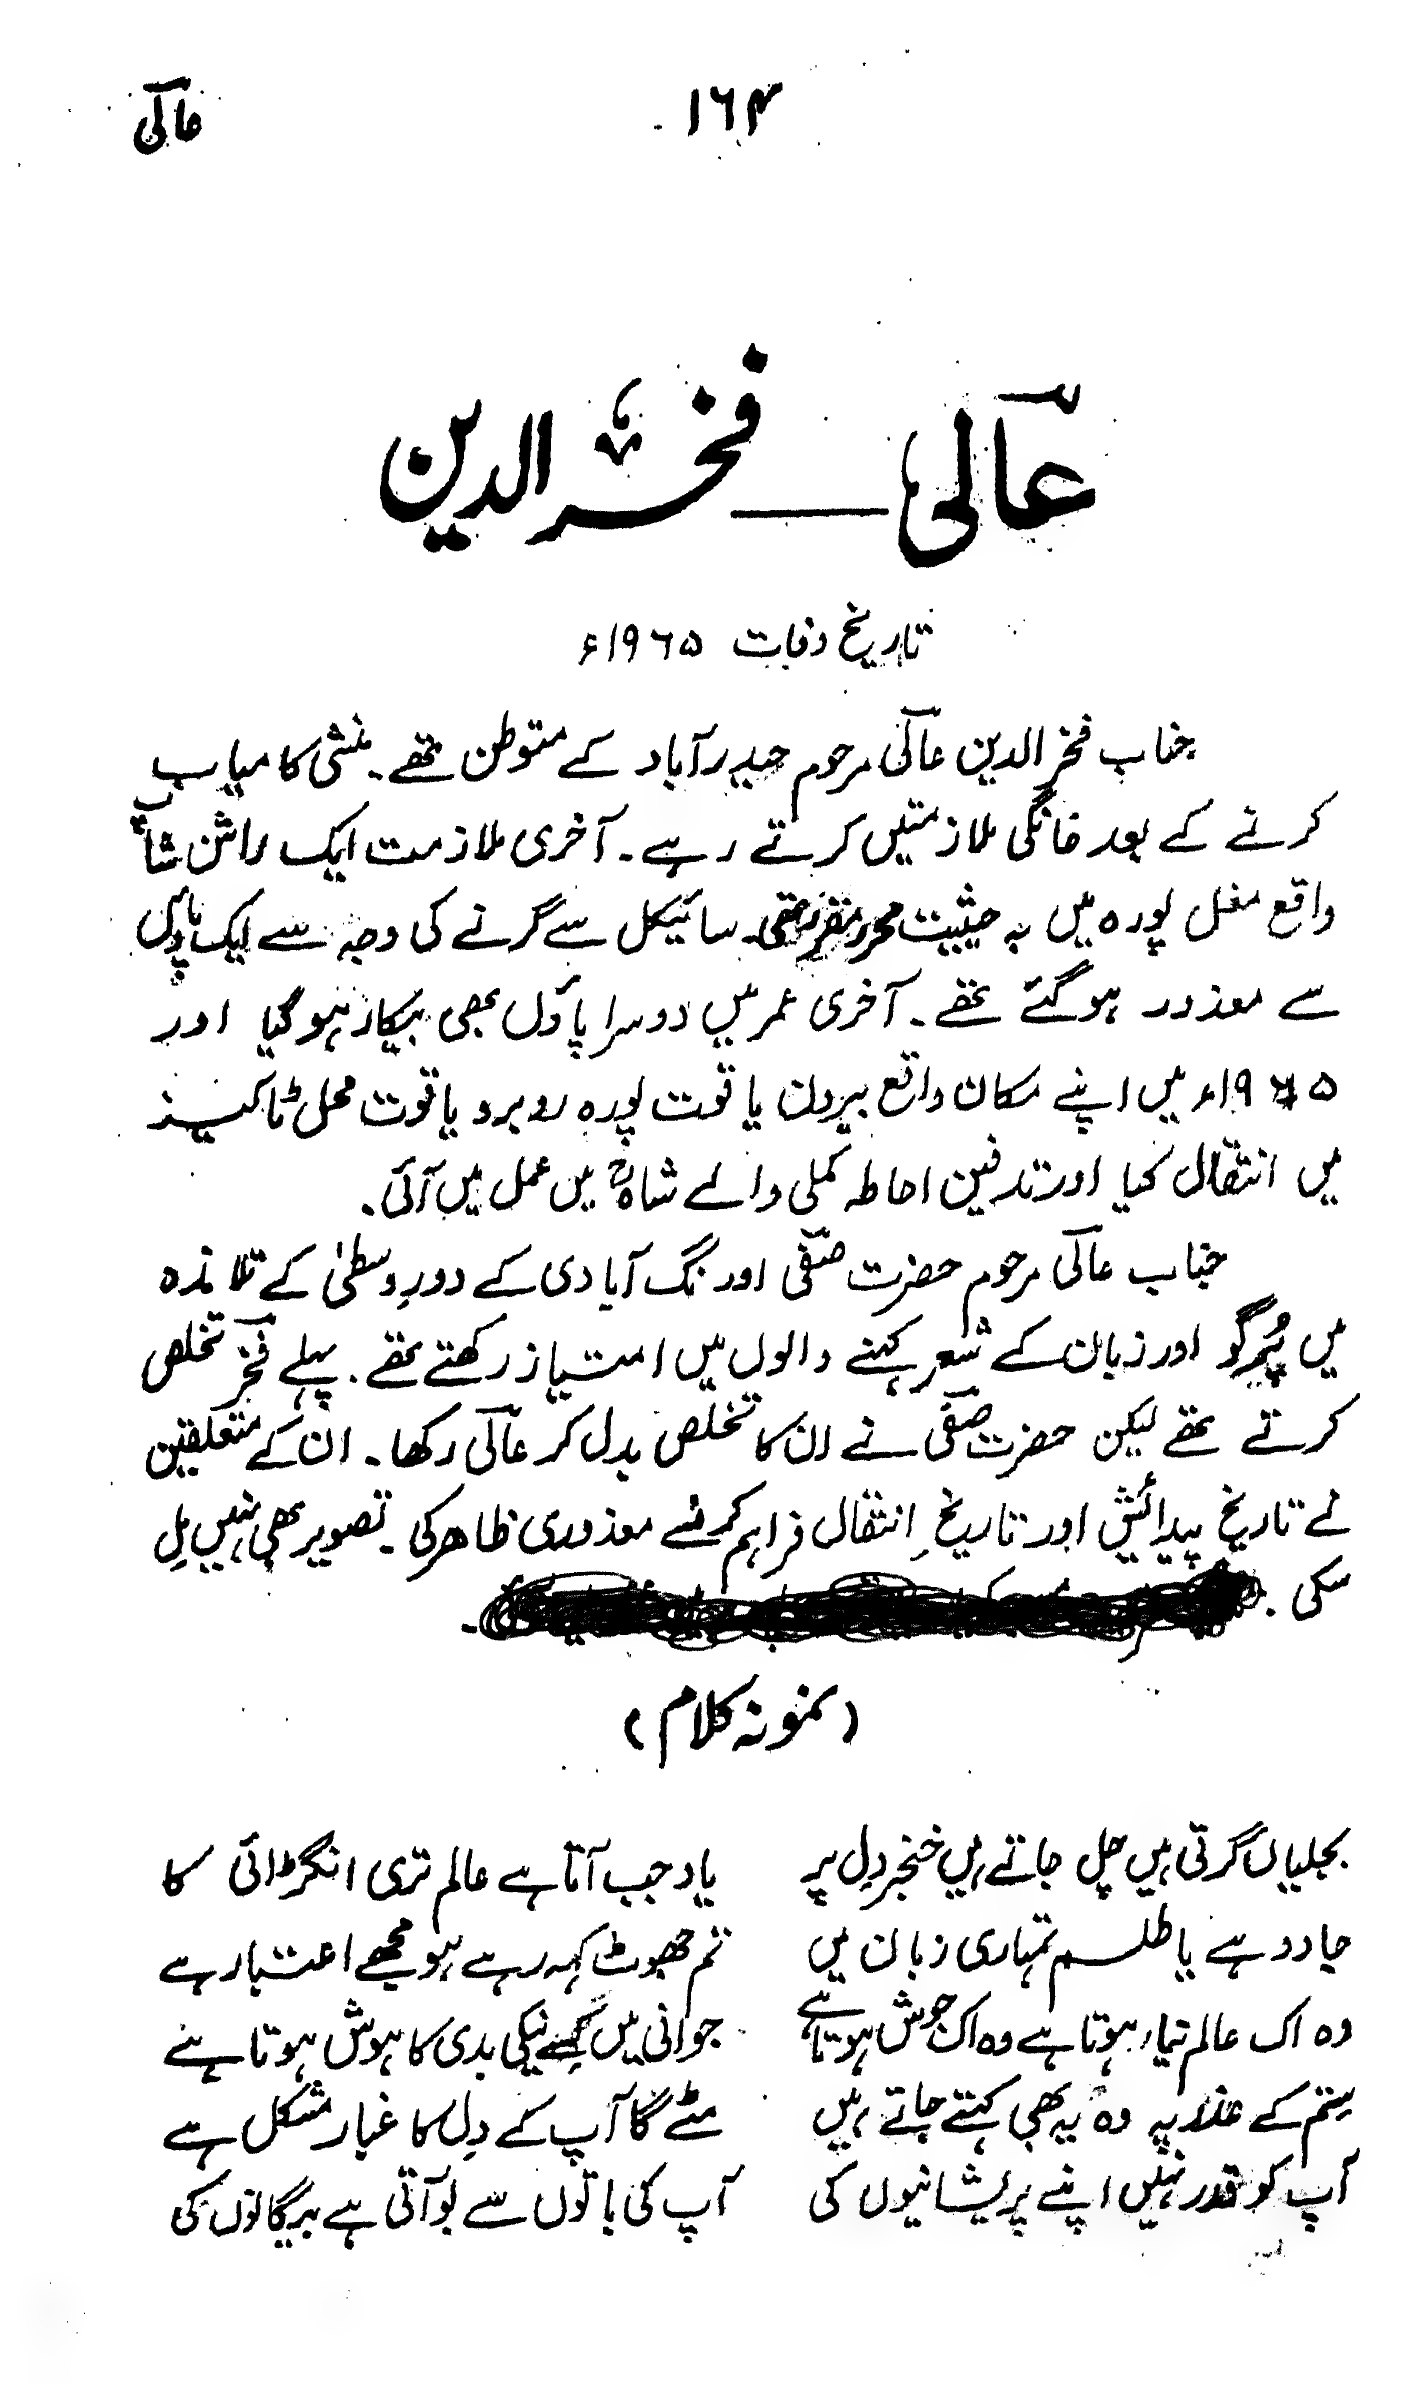 ۱۶۴
عالی
عالی — فخر الدین
تاریخ وفات ۱۹۶۵ء
جناب فخر الدین عالی مرحوم حیدرآباد کے متوطن تھے۔ منشی کامیاب
کرنے کے بعد خانگی ملازمتیں کرتے رہے۔ آخری ملازمت ایک راشن شاپ
واقع مغل پورہ میں بہ حیثیت محرر مقرر تھی۔ سائیکل سے گرنے کی وجہ سے ایک پاؤں
سے معذور ہوگئے تھے۔ آخری عمر میں دوسرا پاؤں بھی بیکار ہوگیا اور
۱۹۶۵ء میں اپنے مکان واقع بیرون یاقوت پورہ روبرو یاقوت محل ٹاکیز
میں انتقال کیا اور تدفین احاطہ کملی والے شاہؒ میں عمل میں آئی۔
جناب عالی مرحوم حضرت صفی اورنگ آبادی کے دورِ وسطیٰ کے تلامذہ
میں پُرگو اور زبان کے شعر کہنے والوں میں امتیاز رکھتے تھے۔ پہلے فخر تخلص
کرتے تھے لیکن حضرت صفی نے ان کا تخلص بدل کر عالی رکھا۔ ان کے متعلقین
نے تاریخ پیدائش اور تاریخِ انتقال فراہم کرنے معذوری ظاہر کی۔ تصویر بھی نہیں مِل
سکی۔
(نمونہ کلام)
بجلیاں گرتی ہیں چل جاتے ہیں خنجر دِل پر یاد جب آتا ہے عالم تری انگڑائی کا
جادو ہے یا طلسم تمہاری زبان میں تم جھوٹ کہہ رہے ہو مجھے اعتبار ہے
وہ اک عالم نیا ہوتا ہے وہ اک جوش ہوتا ہے جوانی میں کِسے نیکی بدی کا ہوش ہوتا ہے
سِتم کے عذر پہ وہ یہ بھی کہتے جاتے ہیں مٹے گا آپ کے دِل کا غبار مشکل ہے
آپ کو قدر نہیں اپنے پریشانیوں کی آپ کی باتوں سے بو آتی ہے بیگانوں کی